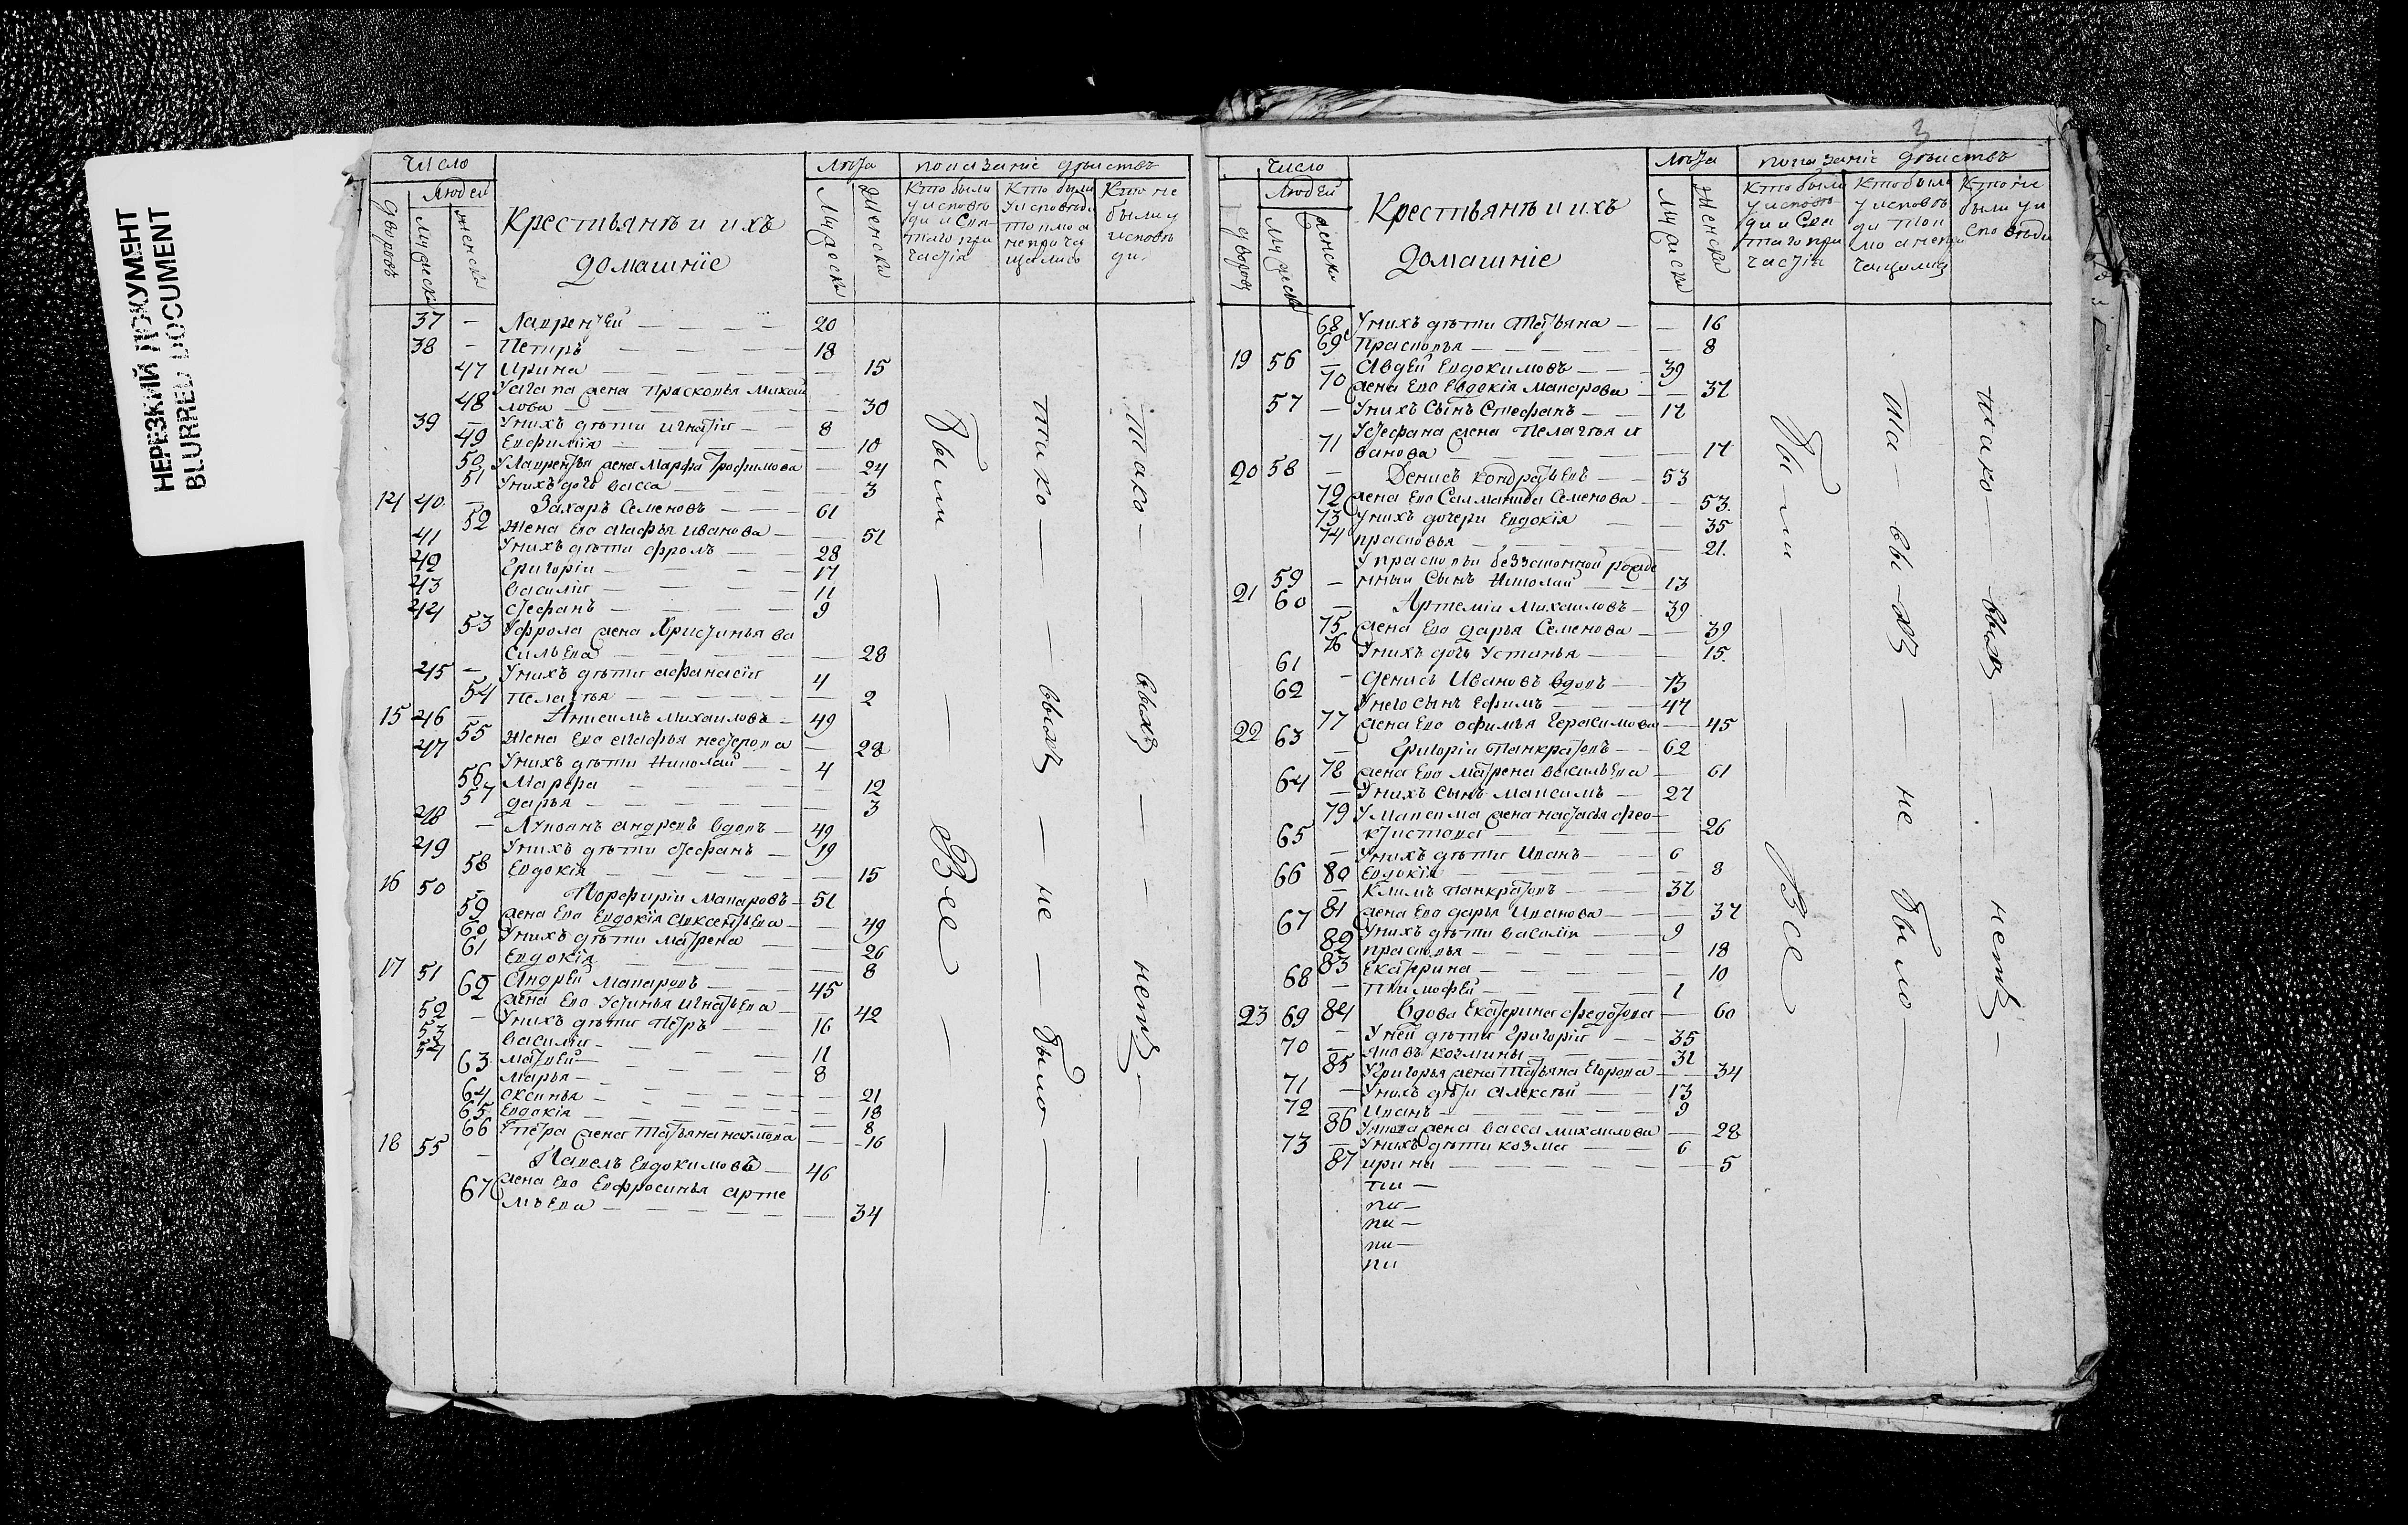 НЕРЕЗКИЙ ДОКУМЕНТ
BLURRED DOCUMENT
Число
Людей
дворовъ
мужеска
женска
Крестьянъ и ихъ
домашнiе
Лѣта
Мужеска
Женска
показанiе дѣйствъ
Кто были у исповѣди и Святаго причастiя
Кто были у исповѣди токмо а не причащались
Кто не были у исповѣди
37 — Лаврентей — 20
38 — Петръ — 18
47 Ирина — 15
48 жена Прасковья Михайлова — 30
39 — У нихъ дѣти Игнатiй — 8
49 Евфимiя — 10
50 У Лаврентья жена Марфа Трофимова — 24
51 У нихъ дочь Васса — 3
14 40 — Захаръ Семеновъ — 61
52 Жена Ево Агафья Иванова — 51
41 У нихъ дѣти Фролъ — 28
42 Григорiй — 17
43 Василiй — 11
44 Стефанъ — 9
53 У Фрола жена Христинья Ва
сильева — 28
45 — У нихъ дѣти Афанасiй 4
54 Пелагья — 2
15 46 — Анисимъ Михаиловъ — 49
55 Жена Ево Агафья Нестерова — 28
47 У нихъ дѣти Николай — 4
56 Марфа — 12
57 Дарья — 3
48 — Лукианъ Андревъ вдовъ — 49
49 У нихъ дѣти Стефанъ — 19
58 Евдокiя — 15
16 50 — Порфирiй Макаровъ — 51
59 жена Ево Евдокiя Авксентьева — 49
60 У нихъ дѣти Матрена — 26
61 Евдокiя — 8
17 51 Андрей Макаровъ — 45
62 жена Ево Устинья Игнатьева — 42
52 — У нихъ дѣти Петръ — 16
53 Василiй — 11
54 Матвей — 8
63 Марья — 21
64 Оксинья — 18
65 Евдокiя — 8
66 У Петра жена Татьяна Наумова — 16
18 55 — Павелъ Евдокимовъ — 46
67 жена Ево Евфросинья Арте
мьева — 34
Были — Все
тако — выхъ — не — было
тако — выхъ — нетъ
3
Число
Людей
дворовъ
мужеска
женска
Крестьянъ и ихъ
Домашнiе
Лѣта
Мужеска
Женска
показанiе дѣйствъ
Кто были у исповѣди и Святаго причастiя
Кто были у исповѣди токмо а не причащались
Кто не были у исповѣди
68 У нихъ дѣти Татьяна — 16
69 Прасковья — 8
19 56 — Авдей Евдокимовъ — 39
70 жена Ево Евдокiя Макарова — 37
57 — У нихъ Сынъ Стефанъ — 17
71 У Стефана жена Пелагья И
ванова — 17
20 58 — Денисъ Кондратьевъ — 53
72 жена Ево Саломанида Семенова — 53
73 У нихъ дочери Евдокiя — 35
74 Прасковья — 21
У Прасковьи беззаконной рожде
59 — нный Сынъ Николай 13
21 60 — Артемiй Михаиловъ — 39
75 жена Ево Дарья Семенова — 39
76 У нихъ дочь Устинья — 15
61 — Денисъ Ивановъ вдовъ — 73
62 У него сынъ Ефимъ — 47
77 жена Ево Офимья Герасимова — 45
22 63 — Григорiй Панкратовъ — 62
78 жена Ево Матрена Васильева — 61
64 — У нихъ Сынъ Максимъ — 27
79 У Максима жена Настасья Фео
ктистова — 26
65 — У нихъ дѣти Иванъ — 6
80 Евдокiя — 8
66 — Климъ Панкратовъ — 37
81 жена Ево Дарья Иванова — 37
67 У нихъ дѣти Василiй — 9
82 Прасковья — 18
83 Екатерина — 10
68 — Тимофей — 1
23 84 Вдова Екатерина Федотова — 60
69 — У ней дѣти Григорiй — 35
70 — Яковъ Козмины — 32
85 У Григорья жена Татьяна Егорова — 34
71 — У нихъ дѣти Алексѣй — 13
72 — Иванъ — 9
86 У Якова жена Васса Михаилова — 28
73 — У нихъ дѣти Козма — 6
87 Ирина — 5
Были — Все
та — вы — хъ — не было
тако — выхъ — нетъ